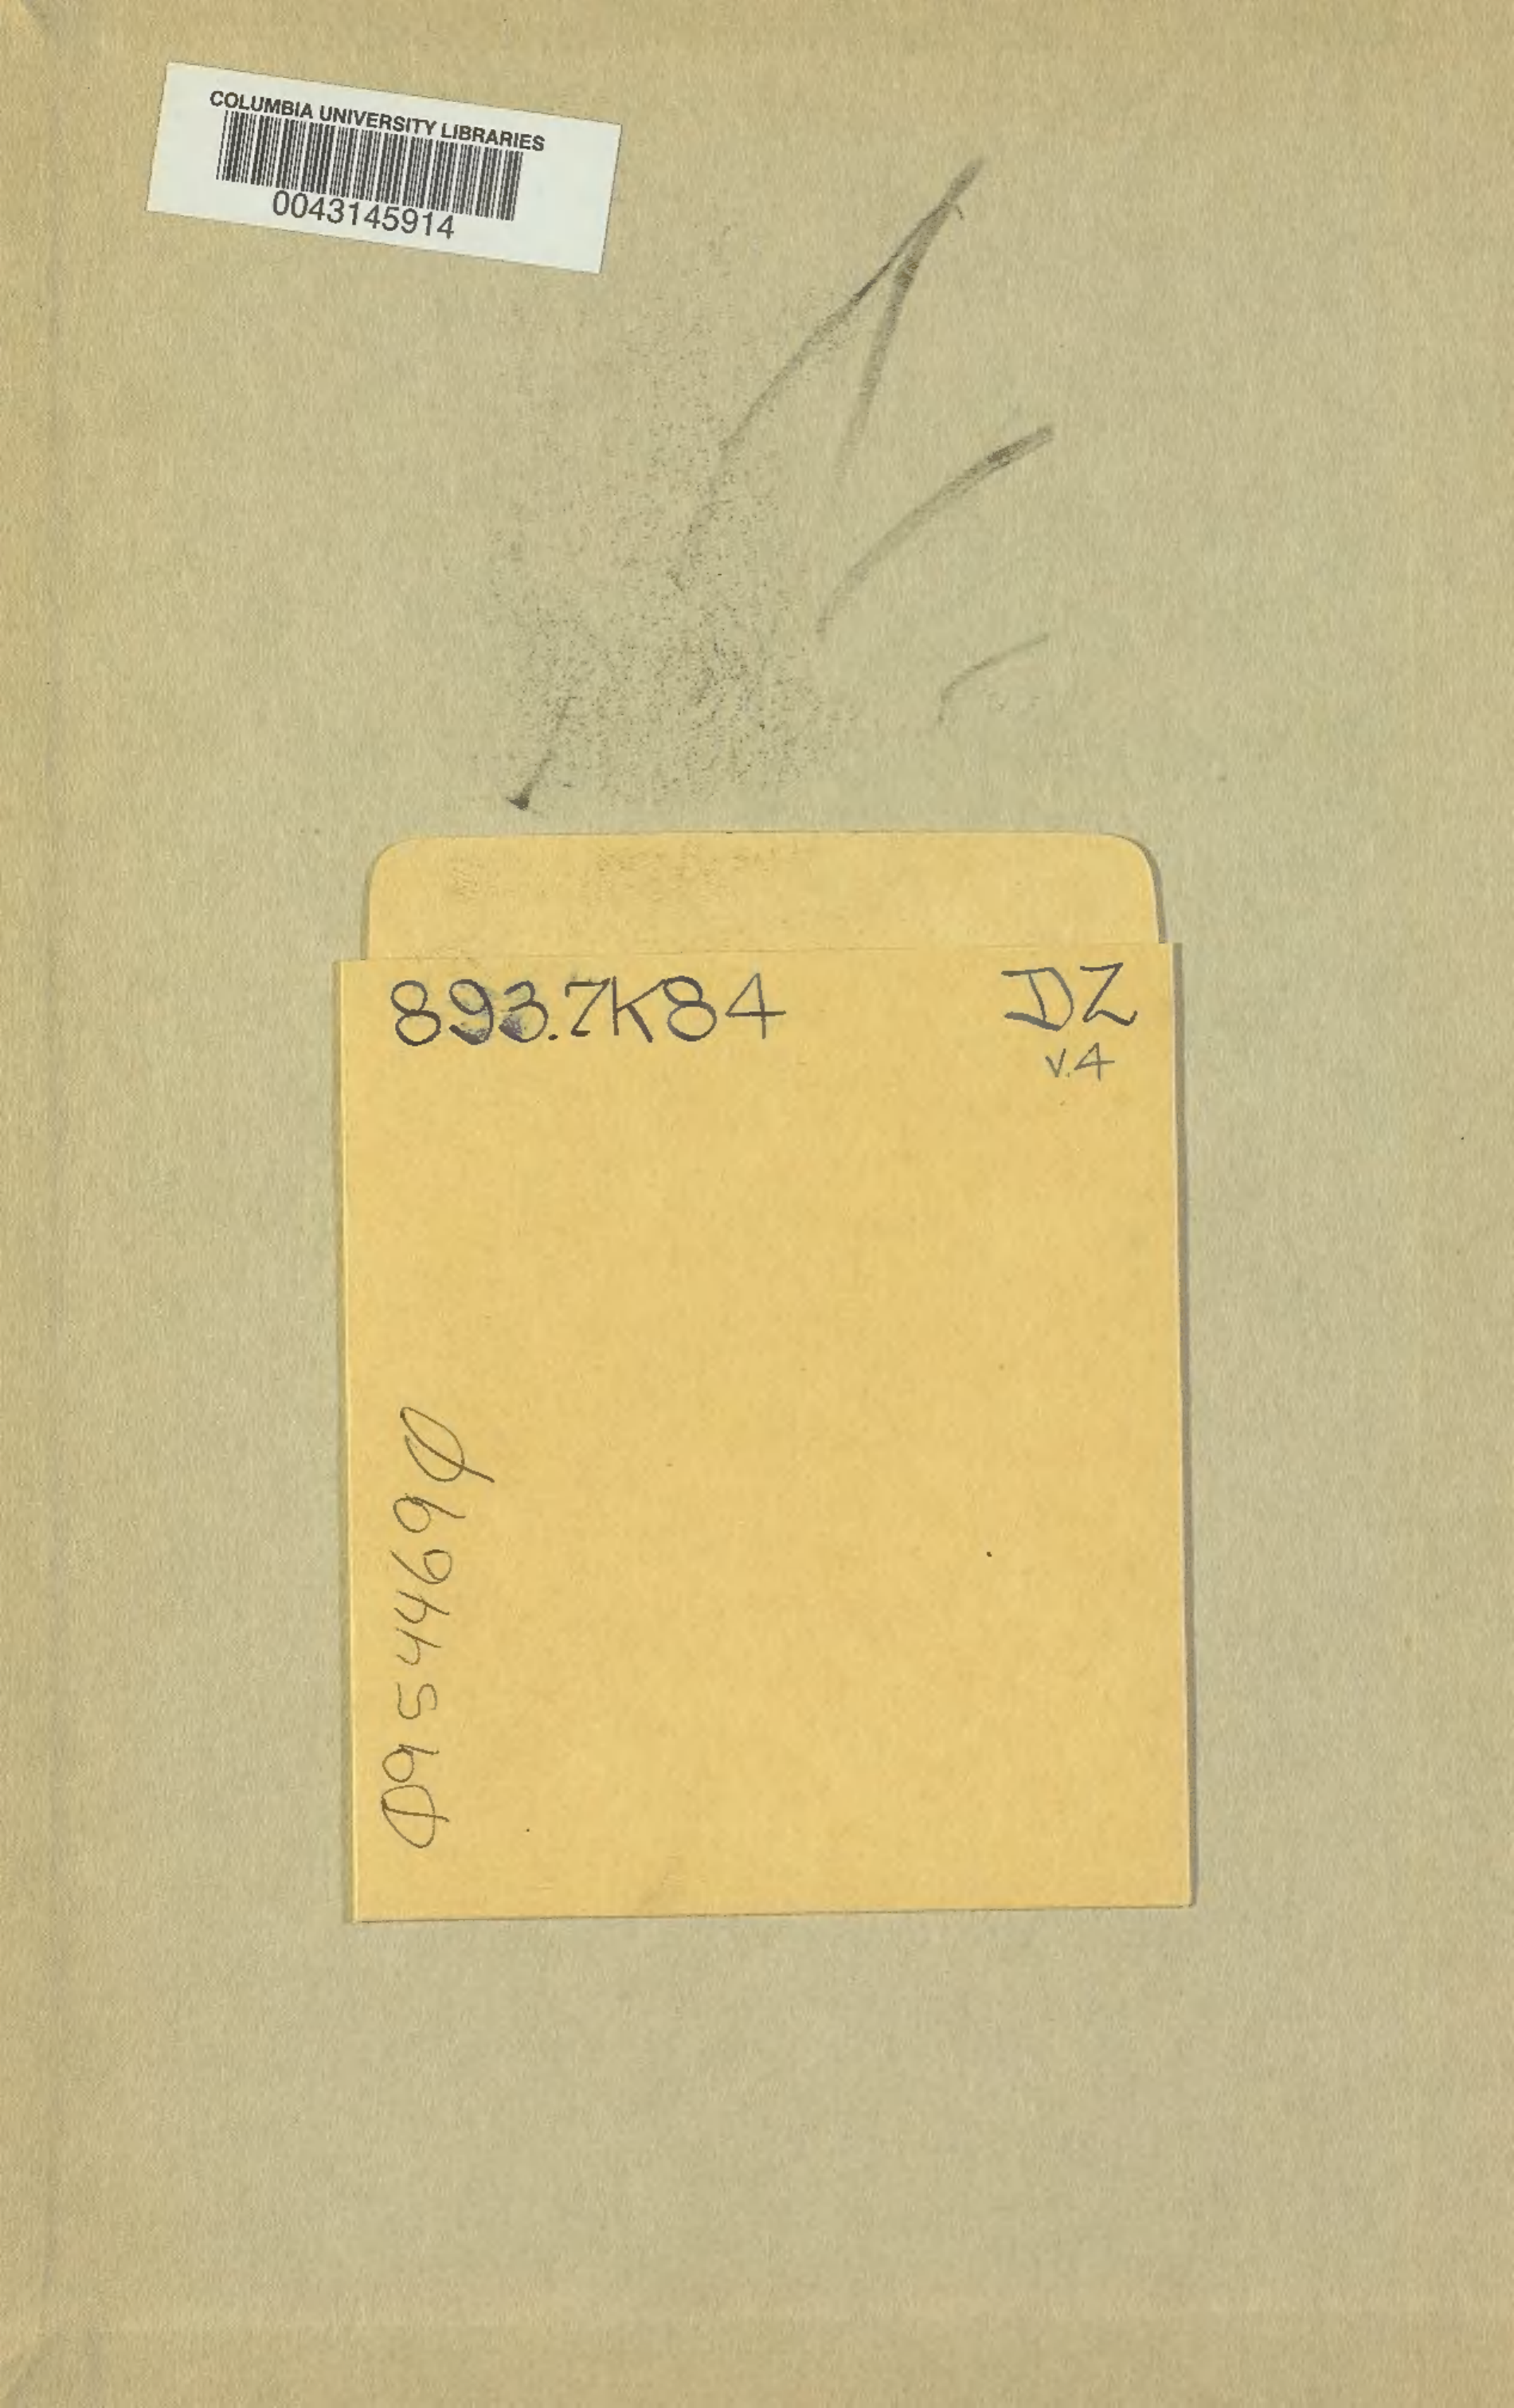 COLUMBIA UNIVERSITY LIBRARIES
0043145914
893.7K84 DZ
v.4
09544690